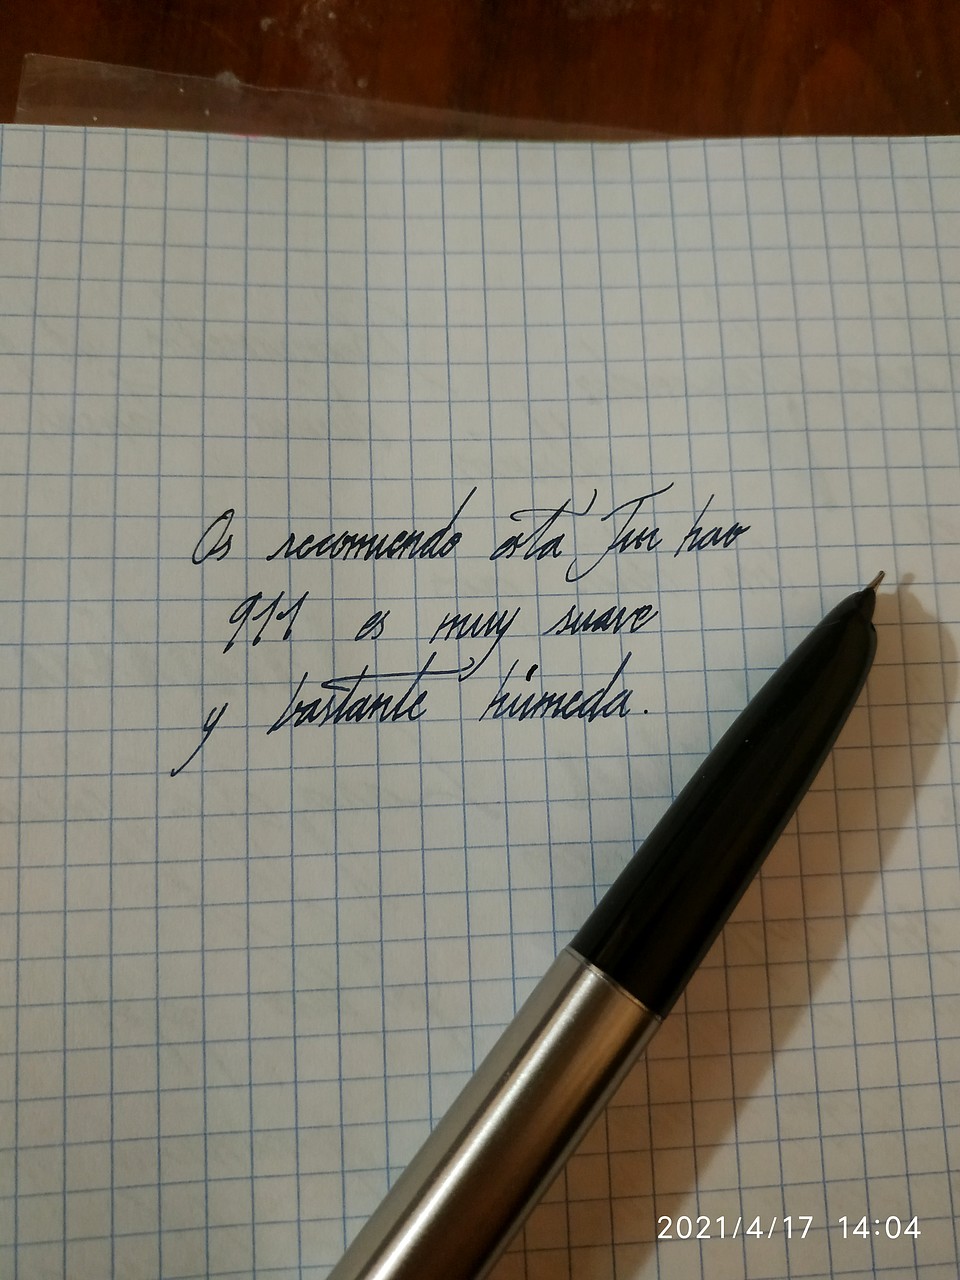 Os recomiendo está Jin hao
911 es muy suave
y bastante húmeda.
2021/4/17 14:04